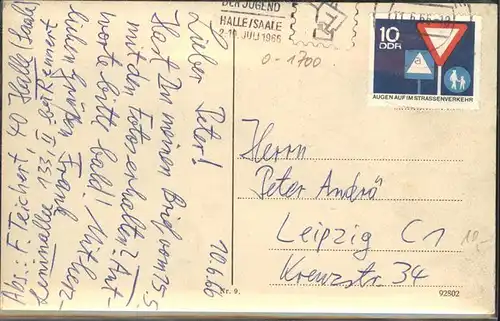 DER JUGEND
HALLE/SAALE
2-10. JULI 1966
11.6.66
10
DDR
AUGEN AUF IM STRASSENVERKEHR
0-1700
10.6.66
Lieber Peter!
Hast Du meinen Brief vom 25.5.
mit den Fotos erhalten? Ant-
worte bitte bald! Mit herz-
lichen Grüßen Frank
Abs.: F. Teichert 40 Halle (Saale)
Leninallee 133, II bei Rennert
Herrn
Peter Andrä
Leipzig C1
Kreuzstr. 34
10.-
Nr. 9.
92802